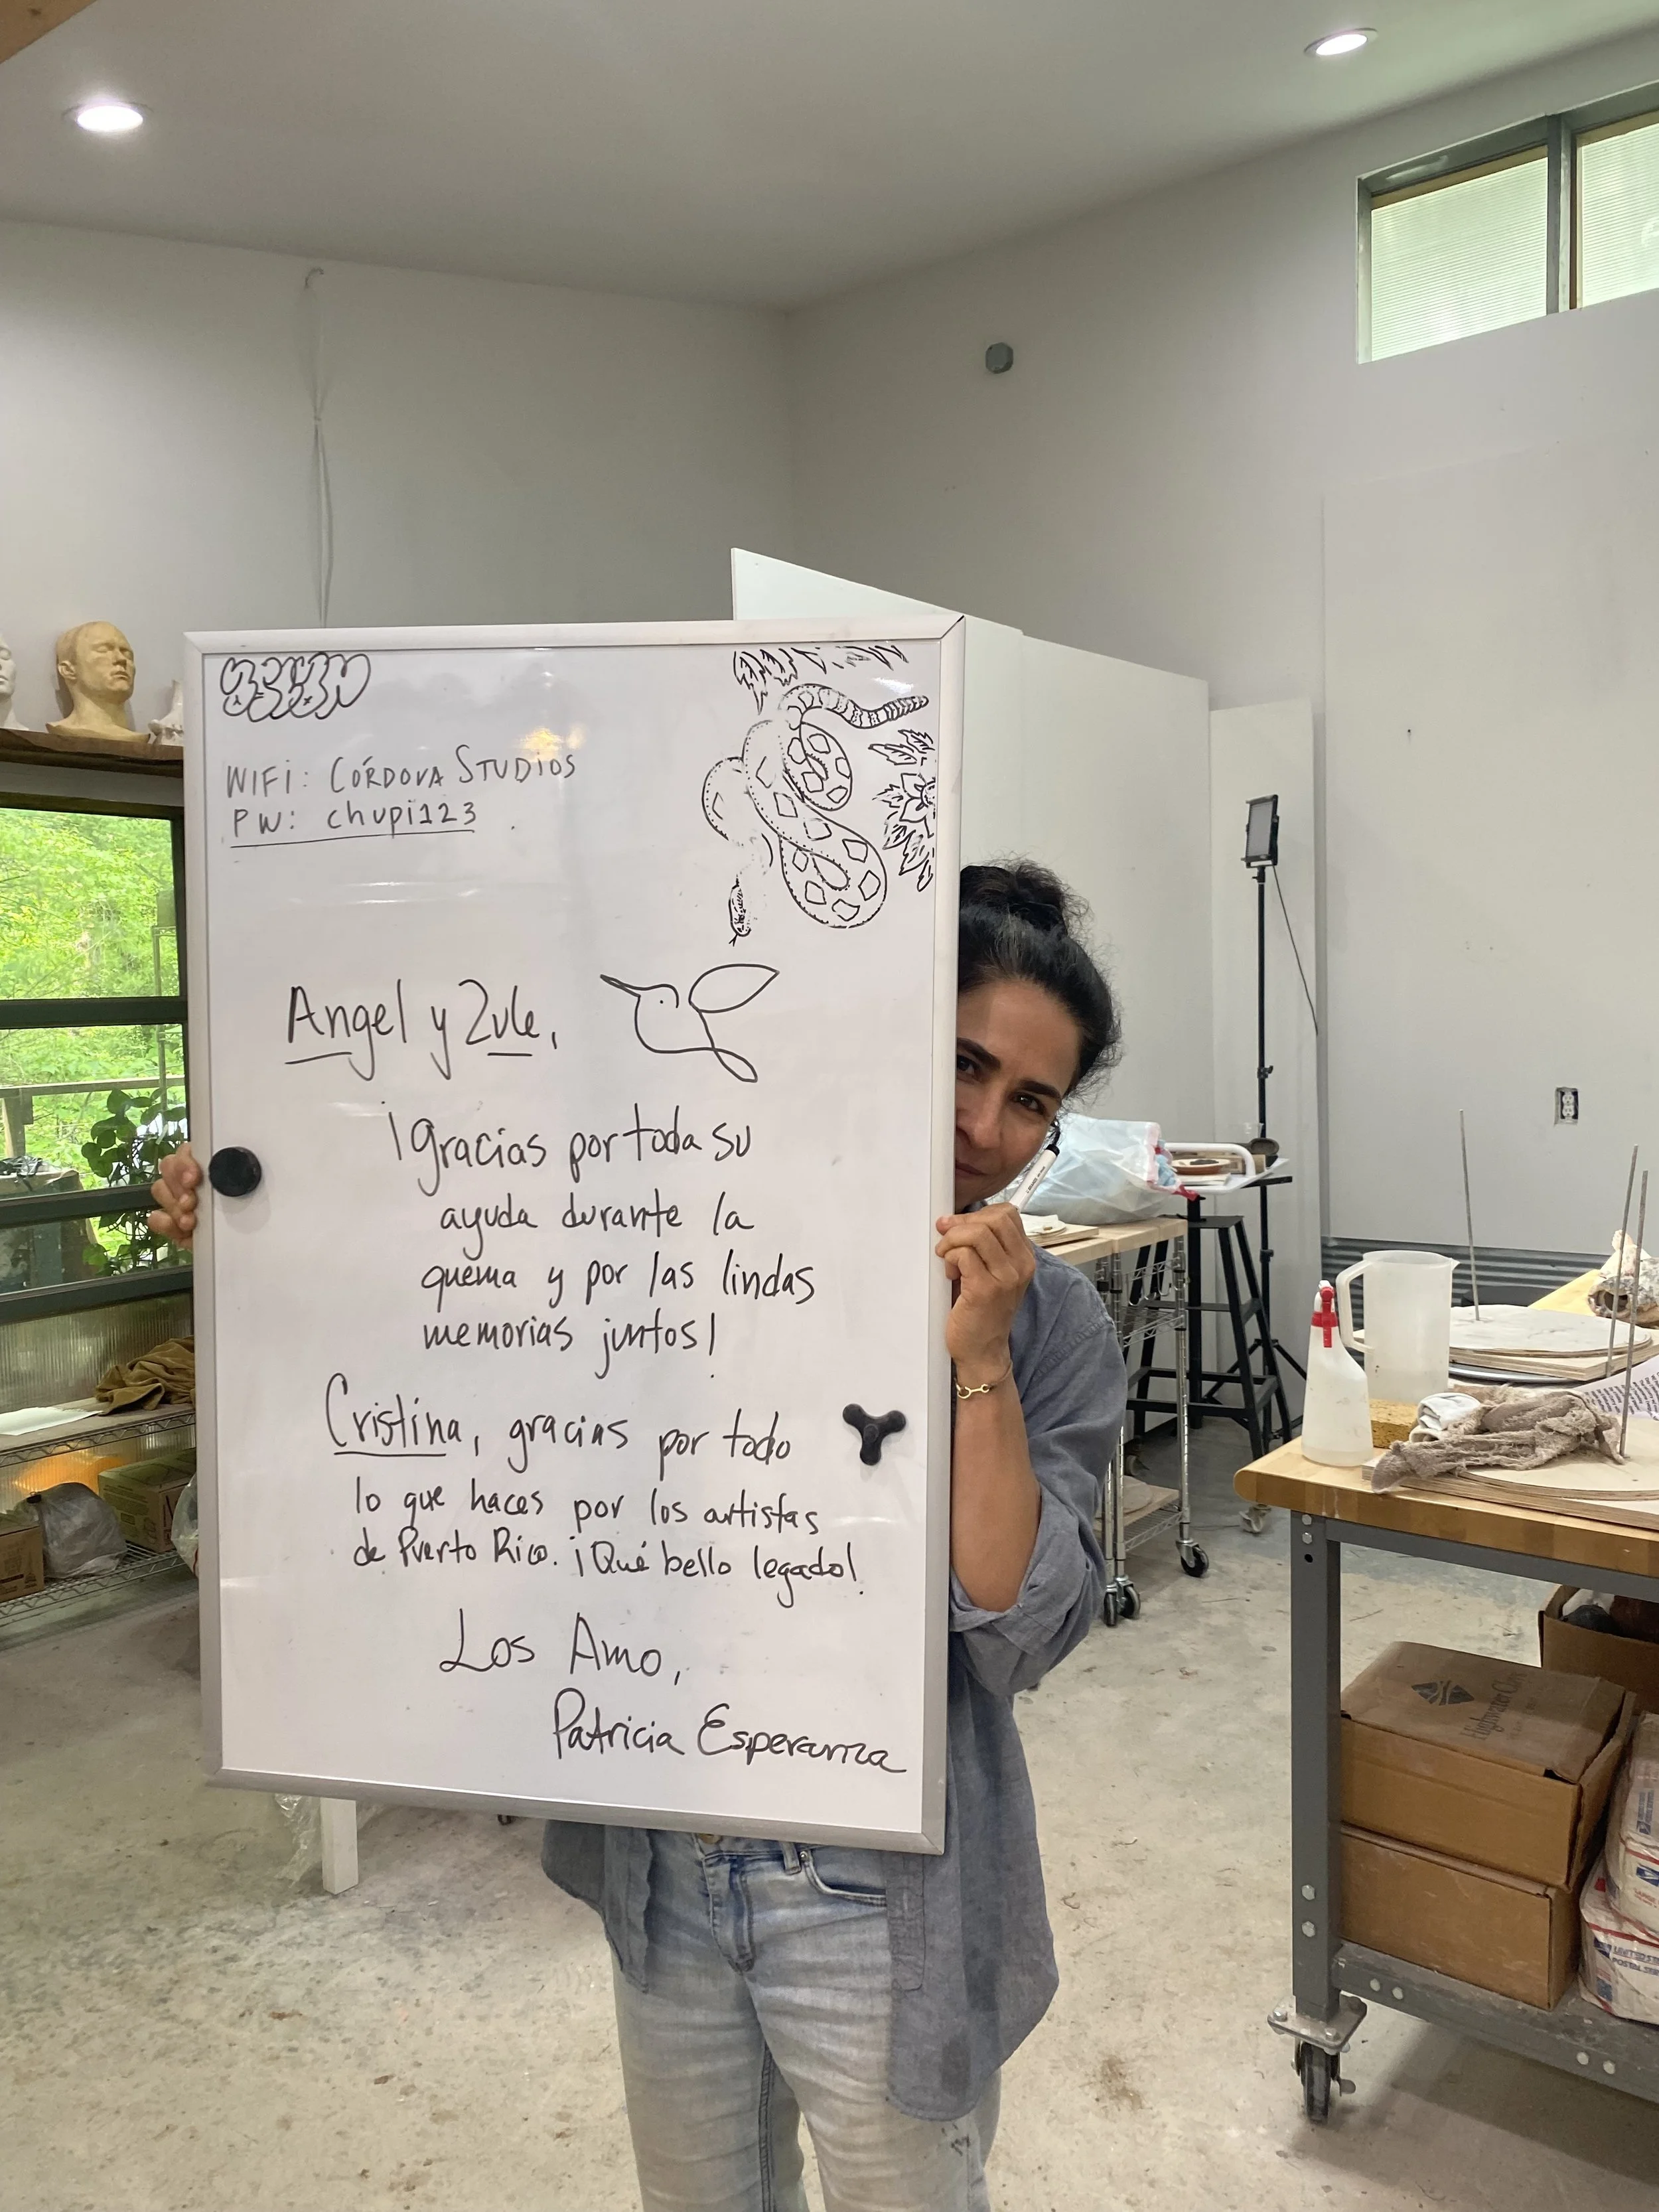 WIFI: CÓRDOVA STUDIOS
PW: chupi123
Angel y Zule,
¡Gracias por toda su
ayuda durante la
quema y por las lindas
memorias juntos!
Cristina, gracias por todo
lo que haces por los artistas
de Puerto Rico. ¡Qué bello legado!
Los Amo,
Patricia Esperanza
Highwater